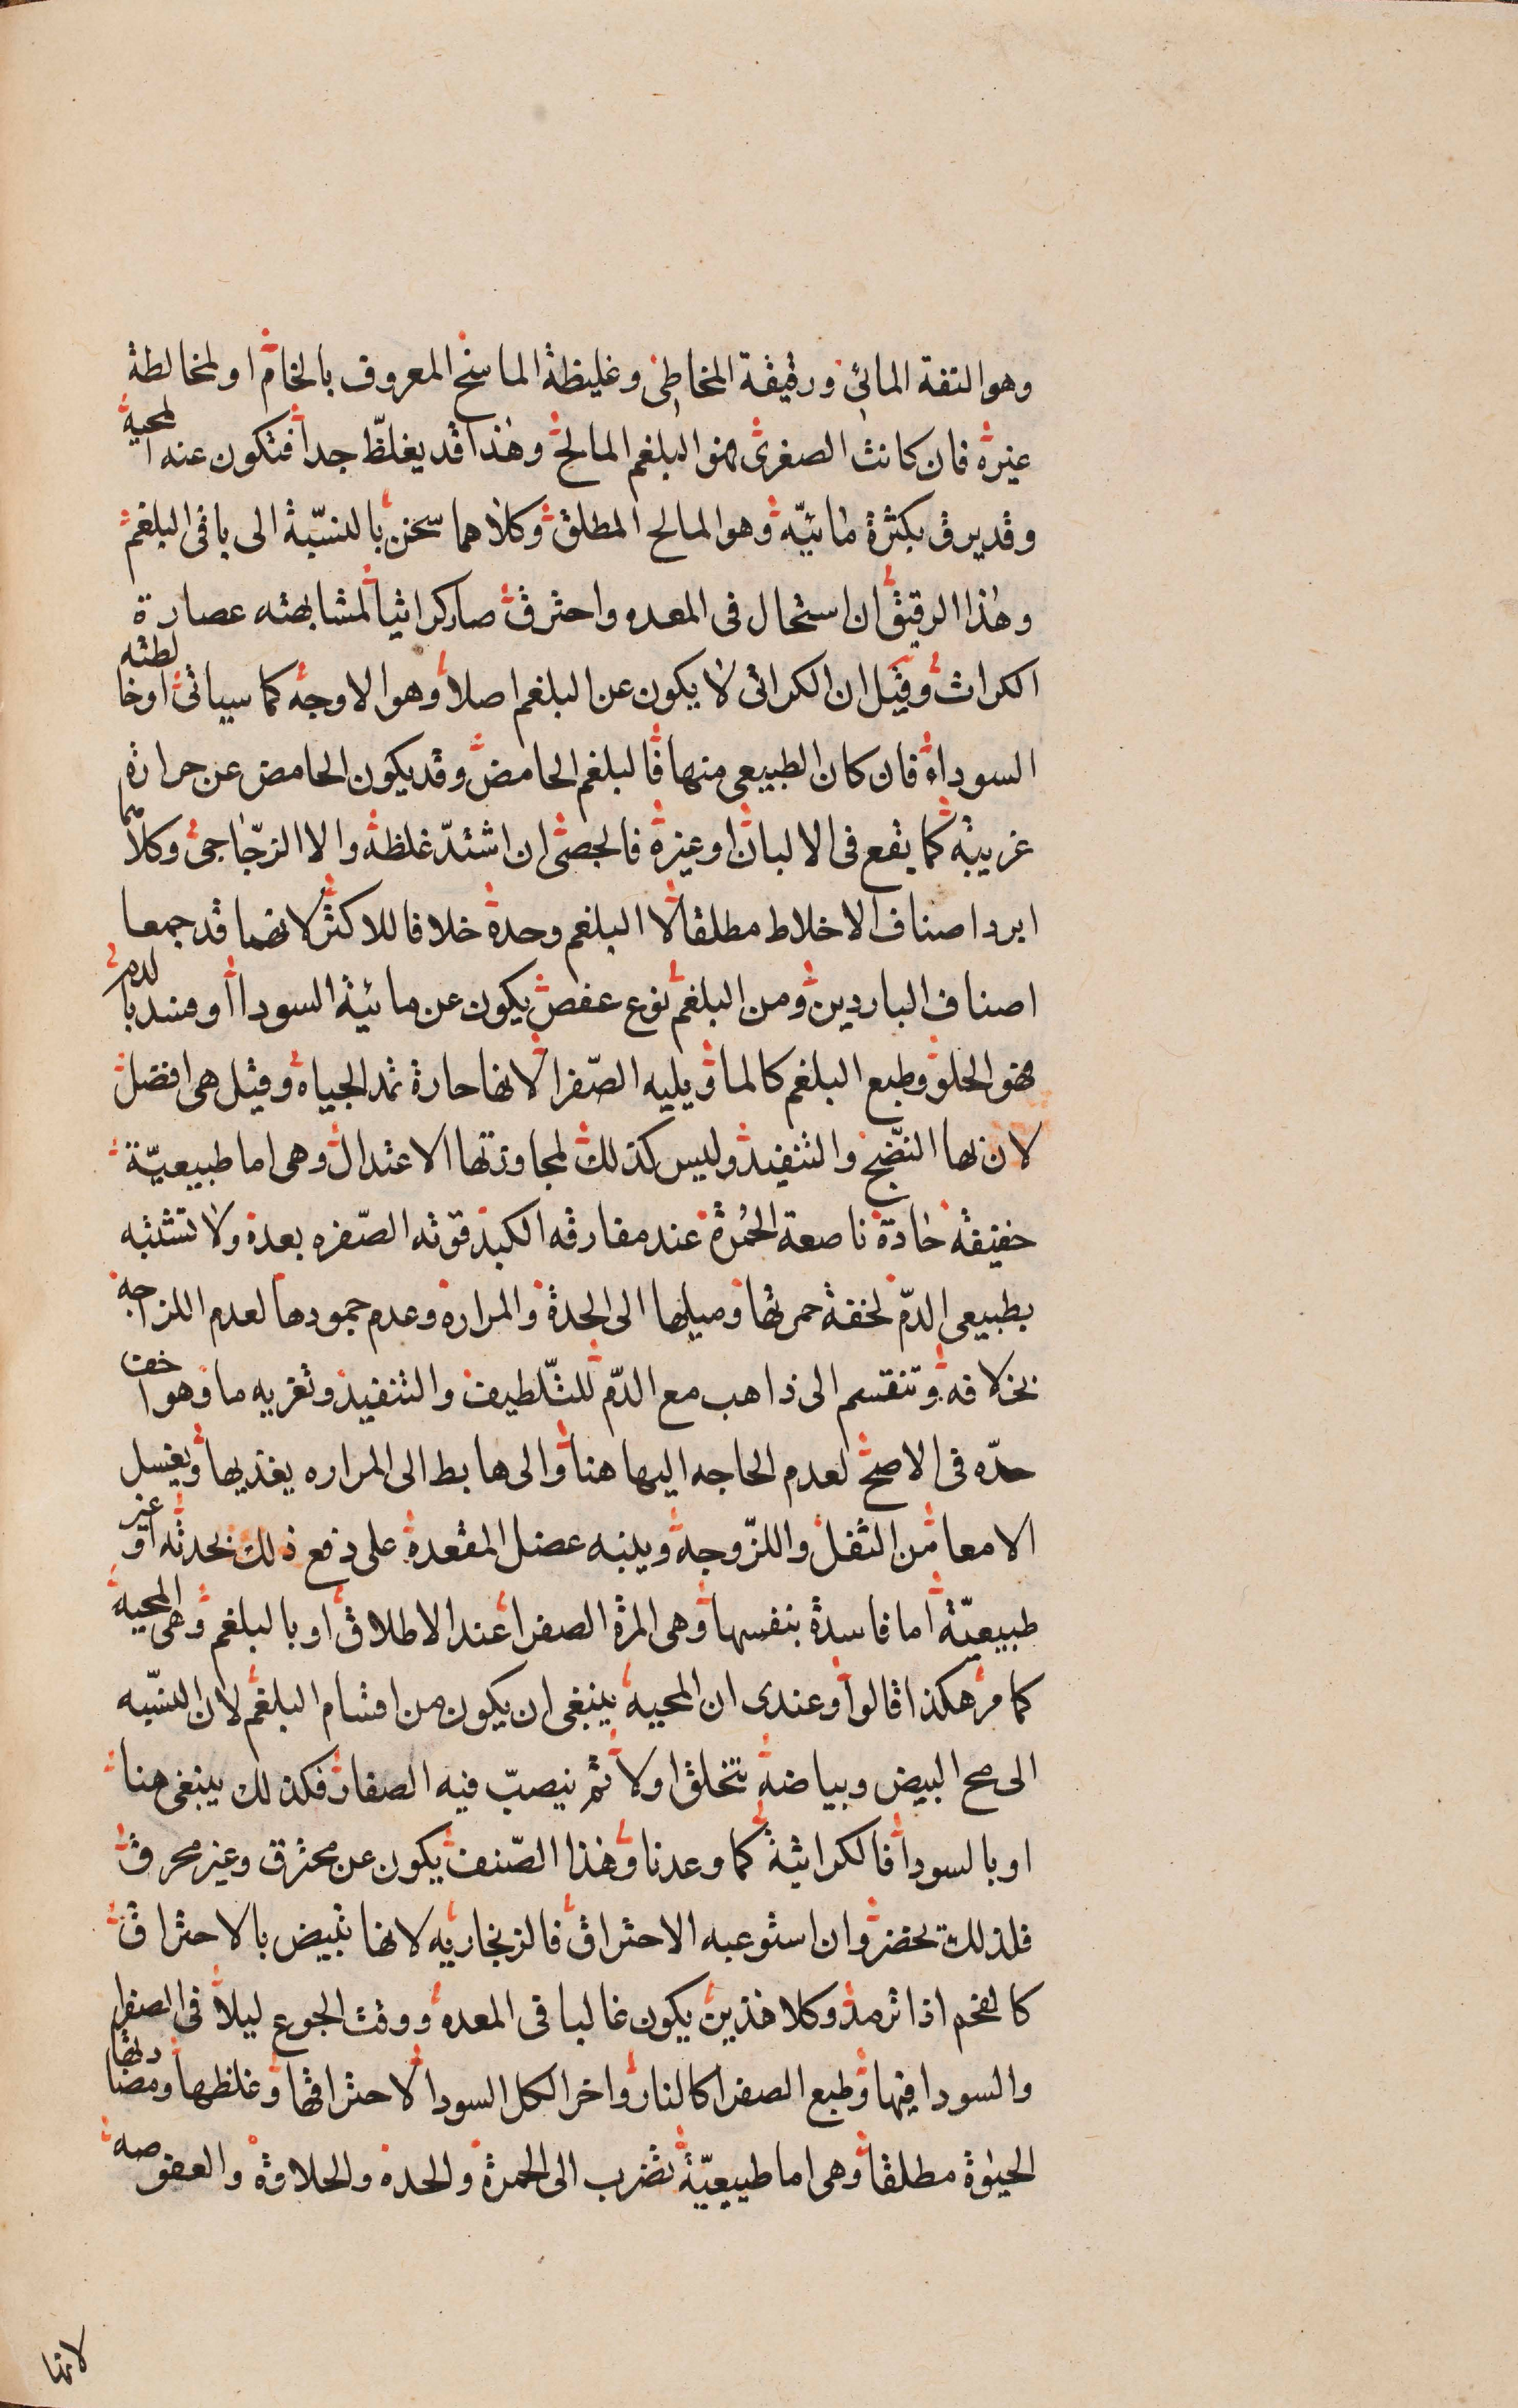 وهو التفة المائي ورقيقة المخاطي وغليظة الماسخ المعروف بالخام او لمخالطة
غيرة فان كانت الصغرى فهو البلغم المالح وهذا قد يغلظ جدا فتكون عنه المحية
وقد يرق بكثرة مائيّه وهو المالح المطلق وكلاهما سخن بالنسبة الى باقى البلغم
وهذا الرقيق ان استحال فى المعده واحترق صار كراثيا لمشابهته عصارة
الكراث وقيل ان الكراثى لا يكون عن البلغم اصلا وهو الاوجه كما سياتى او خالطته
السوداء فان كان الطبيعى منها فالبلغم الحامض وقد يكون الحامض عن حرارة
غريبة كما يقع فى الالبان او غيرة فالجصى ان اشتدّ غلظه والا الزجّاجى وكلاهما
ابرد اصناف الاخلاط مطلقا لا البلغم وحدة خلافا للاكثر لانهما قد جمعا
اصناف الباردين ومن البلغم نوع عفص يكون عن مائية السودا او فسد بالدم
فهو الحلو وطبع البلغم كالما ويليه الصّفرا لانها حارة تمد الحياه وقيل هى افضل
لان لها النضّج والتنفيذ وليس كذلك لمجاوزتها الاعتدال وهى اما طبيعيّة
خفيفه حادة ناصعة الحُمرة عند مفارقه الكبد قوته الصّفره بعدة ولا تشتبه
بطبيعى الدّم لخفة حمرتها وميلها الى الحدة والمرارة وعدم جمودها لعدم اللزاجه
بخلافه وتنقسم الى ذاهب مع الدّم للتّلطيف والتنفيذ وتغريه ما وهو اخف
حدّه فى الاصح لعدم الحاجه اليها هنا والى هابط الى المراره يغذيها ويغسل
الامعا من الثفل واللزّوجة وينبه عضل المقعدة على دفع ذلك بحدته او غير
طبيعيّة اما فاسدة بنفسها وهى المرة الصفرا عند الاطلاق او بالبلغم وهى المحية
كما مر هكذا قالوا وعندى ان المحية ينبغى ان يكون من اقسام البلغم لان النسّبه
الى مح البيض وبياضه يتخلق اولا ثم ينصبّ فيه الصفار فكذلك ينبغى هنا
او بالسودا فالكراثية كما وعدنا وهذا الصّنف يكون عن محترق وغير محرق
فلذلك تخضر وان استوعبه الاحتراق فالزنجاريه لانها تبيض بالاحتراق
كالفحم اذا ترمد وكلا هذين يكون غالبا فى المعده ووقت الجوع ليلا فى الصفرا
والسودا فيها وطبع الصفرا كالنار واخر الكل السودا لاحتراقها وغلظها ومضادتها
الحيوة مطلقا وهى اما طبيعيّة تضرب الى الحمرة والحدة والحلاوة والعفوصه
لانها